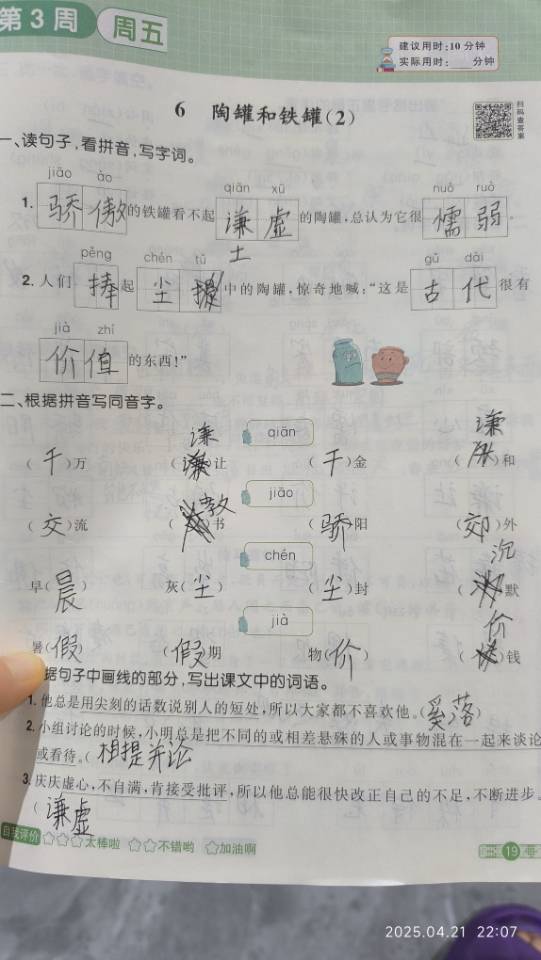 第3周 周五
建议用时:10分钟
实际用时: 分钟
6 陶罐和铁罐(2)
扫码查答案
一、读句子,看拼音,写字词。
jiāo ào qiān xū nuò ruò
1. 骄傲的铁罐看不起谦虚的陶罐,总认为它很懦弱.
pěng chén tǔ gǔ dài
土
2. 人们捧起尘 中的陶罐,惊奇地喊:“这是古代很有
jià zhí
价值的东西!”
二、根据拼音写同音字。
qiān
(千)万 (谦)让 (千)金 (谦)和
jiāo
(交)流 (教)书 (骄)阳 (郊)外
chén
早(晨) 灰(尘) 尘)封 (沉)默
jià
暑(假) (假)期 物(价) (价)钱
据句子中画线的部分,写出课文中的词语。
1. 他总是用尖刻的话数说别人的短处,所以大家都不喜欢他。(奚落)
2. 小组讨论的时候,小明总是把不同的或相差悬殊的人或事物混在一起来谈论
或看待。(相提并论
3. 庆庆虚心,不自满,肯接受批评,所以他总能很快改正自己的不足,不断进步。
(谦虚
自我评价 ☆☆☆太棒啦 ☆☆不错哟 ☆加油啊
19
2025.04.21 22:07